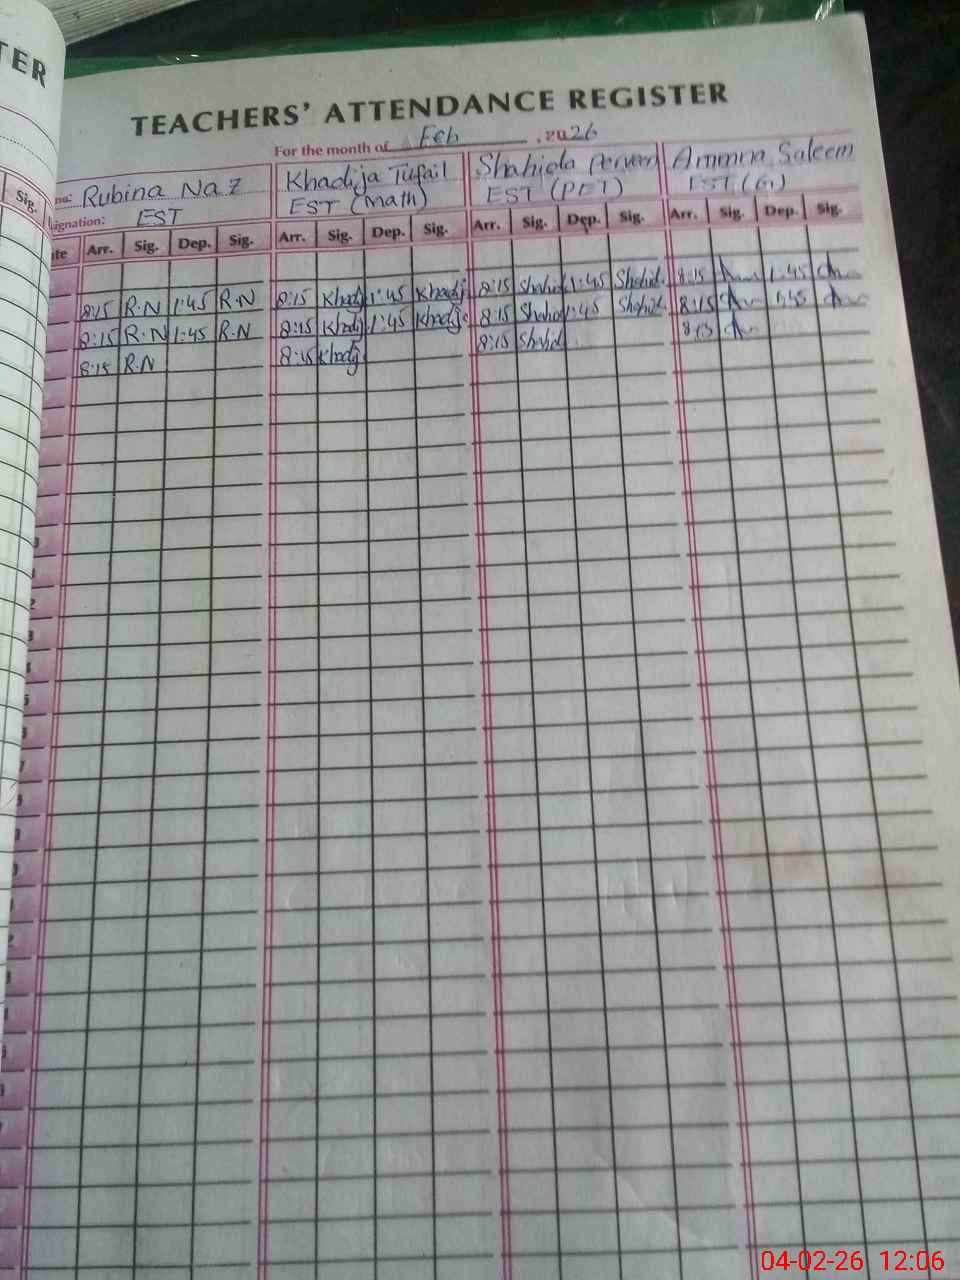 TER
TEACHERS' ATTENDANCE REGISTER
For the month of Feb , 2026
Sig.
Rubina Naz Khadija Tufail Shahida Perveen Ammna Saleem
ignation: EST EST (Math) EST (PET) EST (G)
Arr. Sig. Dep. Sig. Arr. Sig. Dep. Sig. Arr. Sig. Dep. Sig. Arr. Sig. Dep. Sig.
8:15 R.N 1:45 R.N 8:15 Khadj 1:45 Khadj 8:15 Shahid 1:45 Shahid 8:15 1:45
8:15 R.N 1:45 R.N 8:15 Khadj 1:45 Khadj 8:15 Shahid 1:45 Shahid 8:15 1:45
8:15 R.N 8:15 Khadj 8:15 Shahid 8:15
04-02-26 12:06